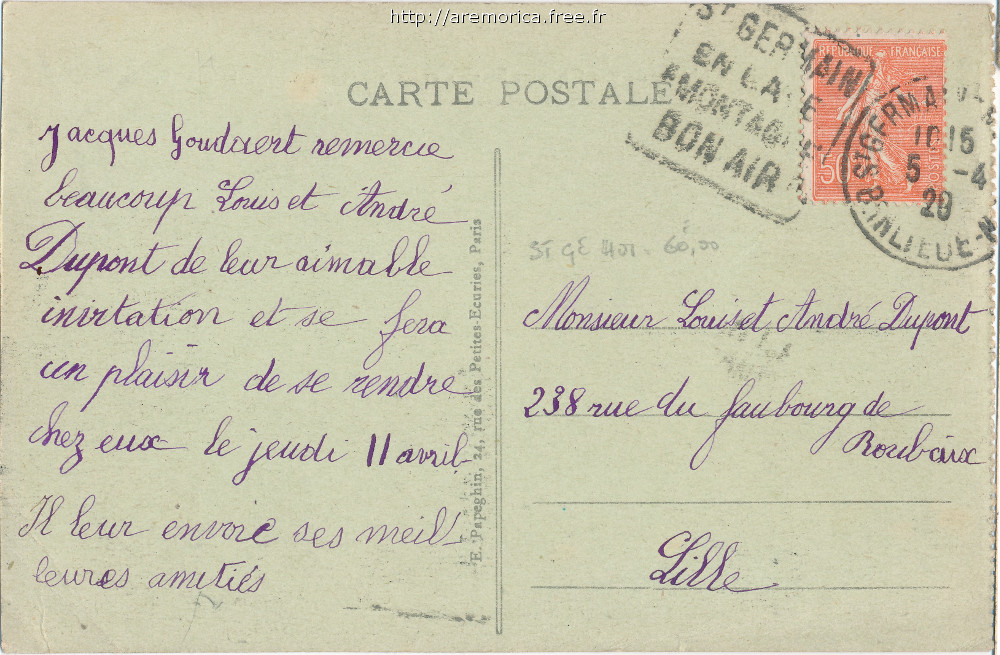 http://aremorica.free.fr
CARTE POSTALE
ST GERMAIN
EN LAYE
A MONTAGNE
BON AIR
RÉPUBLIQUE FRANÇAISE
50
10 15
5 -4
29
Jacques Goudaert remercie
beaucoup Louis et André
Dupont de leur aimable
invitation et se fera
un plaisir de se rendre
chez eux le jeudi 11 avril.
Il leur envoie ses meil-
leures amitiés
E. Papeghin, 24, rue des Petites-Ecuries, Paris
ST GE 60,00
Monsieur Louis et André Dupont
238 rue du faubourg de
Roubaix
Lille